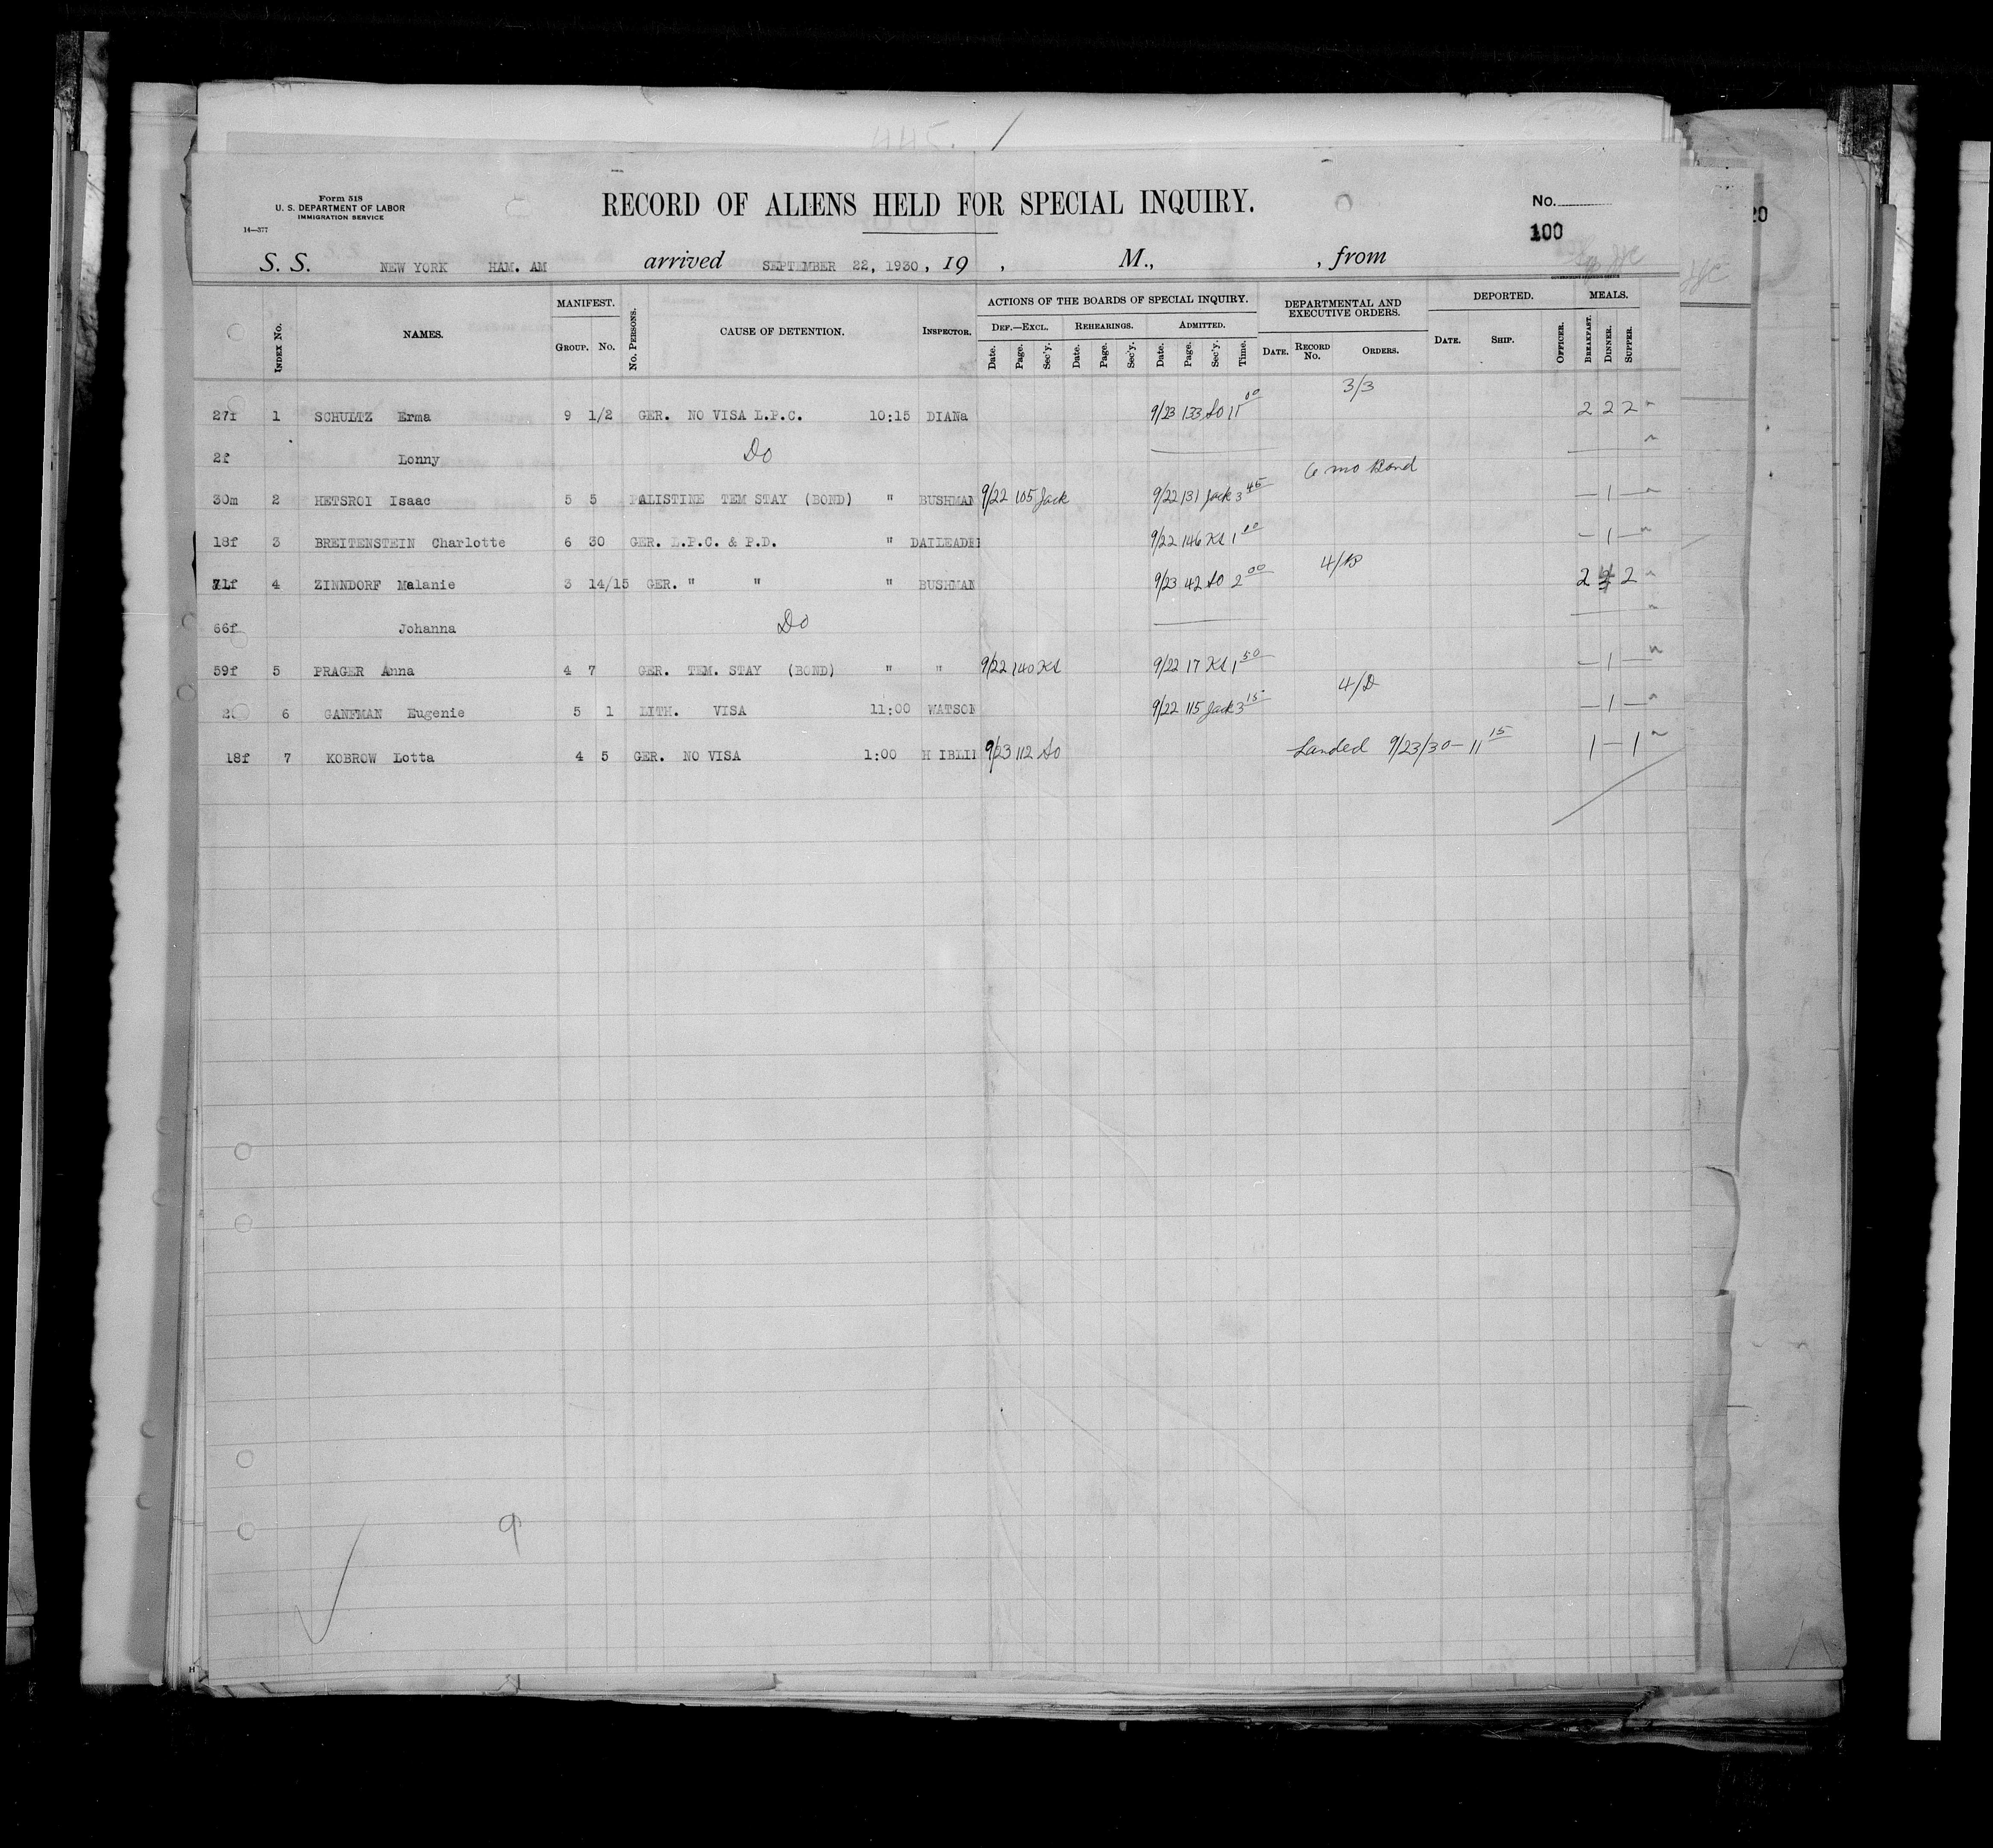 445. /
Form 518
U. S. DEPARTMENT OF LABOR
IMMIGRATION SERVICE
14—377
RECORD OF ALIENS HELD FOR SPECIAL INQUIRY.
No.
100
20
S. S. NEW YORK HAM. AM arrived SEPTEMBER 22, 1930, 19 , M., , from
INDEX No. NAMES. MANIFEST. GROUP. No. No. PERSONS. CAUSE OF DETENTION. INSPECTOR. ACTIONS OF THE BOARDS OF SPECIAL INQUIRY. DEPARTMENTAL AND EXECUTIVE ORDERS. DEPORTED. MEALS.
DEF.—EXCL. REHEARINGS. ADMITTED.
Date. Page. Sec'y. Date. Page. Sec'y. Date. Page. Sec'y. Time. DATE. RECORD No. ORDERS. DATE. SHIP. OFFICER. BREAKFAST. DINNER. SUPPER.
3/3
27f 1 SCHULTZ Erma 9 1/2 GER. NO VISA L.P.C. 10:15 DIANa 9/23 133 So 11 00 2 2 2
2f Lonny Do
6 mo Bond
30m 2 HETSROI Isaac 5 5 PALISTINE TEM STAY (BOND) " BUSHMAN 9/22 105 Jack 9/22 131 Jack 3 45 — 1 —
18f 3 BREITENSTEIN Charlotte 6 30 GER. L.P.C. & P.D. " DAILEADER 9/22 146 KS 1 — 1 —
4/B
71f 4 ZINNDORF Malanie 3 14/15 GER. " " " BUSHMAN 9/23 42 So 2 00 2 2
66f Johanna Do
59f 5 PRAGER Anna 4 7 GER. TEM. STAY (BOND) " " 9/22 140 KS 9/22 17 KS 1 50 — 1 —
4/D
6 GANFMAN Eugenie 5 1 LITH. VISA 11:00 WATSON 9/22 115 Jack 3 15 — 1 —
18f 7 KOBROW Lotta 4 5 GER. NO VISA 1:00 H IBLIN 9/23 112 So Landed 9/23/30 — 11 15 1 — 1
9